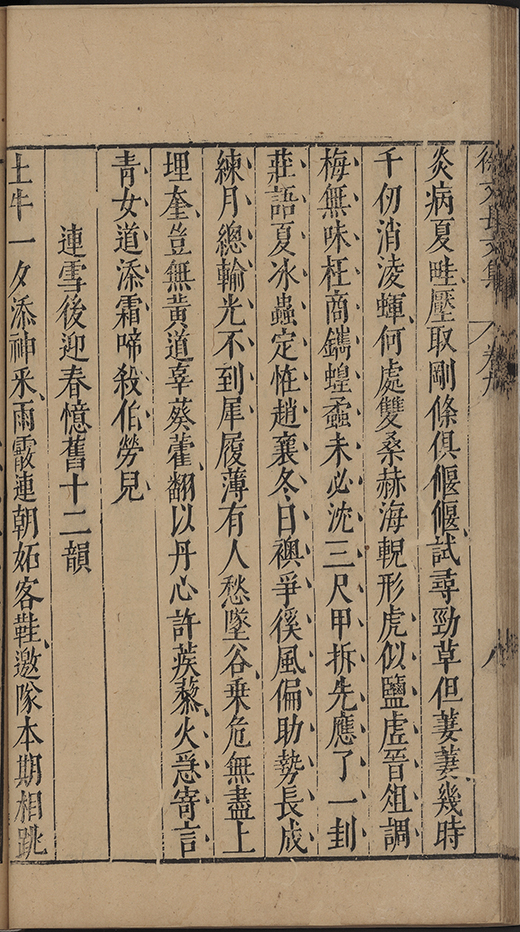 徐文長文集 卷九 八
炎病夏畦壓取剛條俱偃偃試尋勁草但萋萋幾時
千仞消淩蟬何處雙桑赫海輗形虎似鹽虛晉俎調
梅無味枉商鐫蝗螽未必沈三尺甲拆先應了一封
莊語夏冰蟲定恠趙襄冬日襖爭徯風偏助勢長成
練月總輸光不到犀履薄有人愁墜谷乗危無盡上
埋奎豈無黄道辜葵藿翻以丹心許蒺藜火急寄言
青女道添霜啼殺伯勞兒
連雪後迎春憶舊十二韻
土牛一夕添神采雨霰連朝妬客鞋邀隊本期相跳